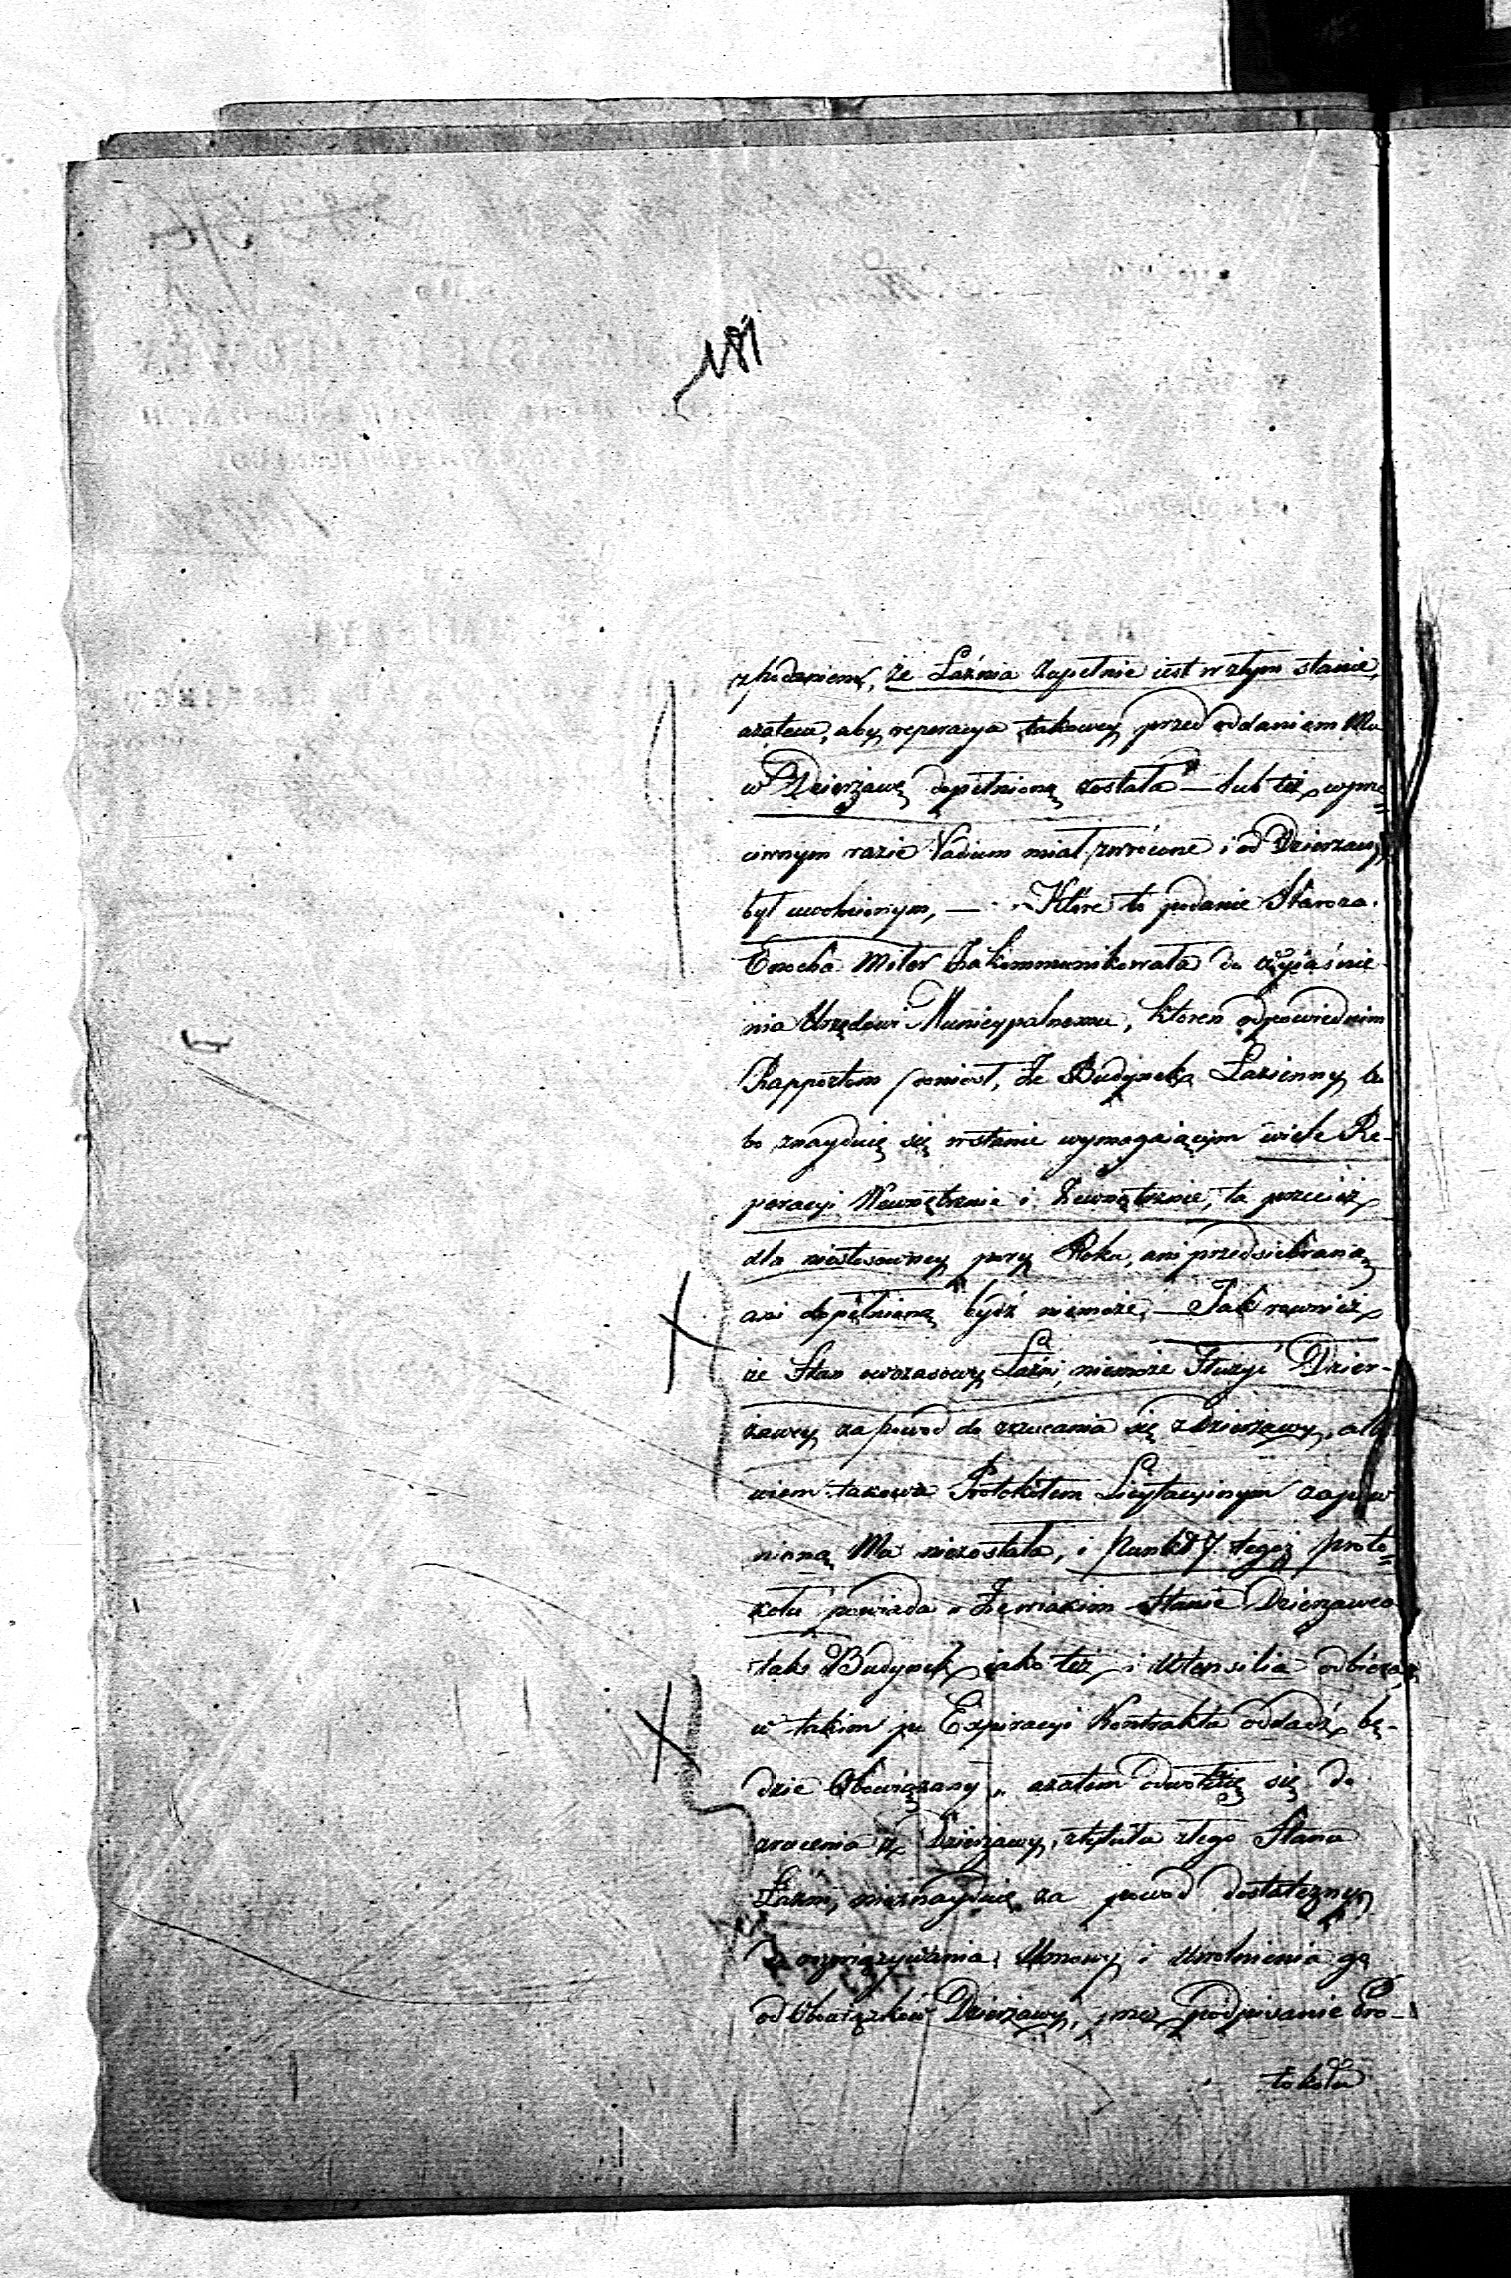 181
z podaniem, że Łaźnia zupełnie iest w złym stanie,
azatem, aby reperacya takowey przed oddaniem Mu
w Dzierżawę dopełnioną została — lub też w prze=
ciwnym razie Vadium miał zwrócone i od Dzierzawy
był uwolnionym, — Które to podanie Staroza.
Enocha Miler Zakommunikowała do wyiaśnie
nia Urzędowi Municypalnemu, ktoren odpowiednim
Rapportem doniosł, Że Budynek Łazienny lu
bo znayduię się w stanie wymagaiącym wiele Re-
peracyi Wewnętrznie i Zewnętrznie, ta przecież
dla niestosowney pory Roku, ani przedsiebraną
ani dopełnioną bydź niemoże, — Jak rownież
że Stan owczasowy Łaźni, niemoże Służyć Dzier-
żawcy za powod do zrzucania się z Dzierżawy, alb
wiem takowa Protokołem Licytacyinym zapew
nioną Mu niezostała, i Punkt 7 tegoż proto=
kołu powiada „ Że w iakim Stanie Dzierzawca
tak Budynek iako też i Utensilia odbierze,
w takim po Expiracyi Kontraktu oddadź bę-
dzie Obowiązany „ azatem odwołuię się do
zrucenia z Dzierżawy, z tytułu złego Stanu
Łaźni, nieznayduię za powod dostateczny
rozwiązywania Umowy i Uwolnienia go
od Obowiązków Dzierżawy, przez podpisanie Pro-
tokołu